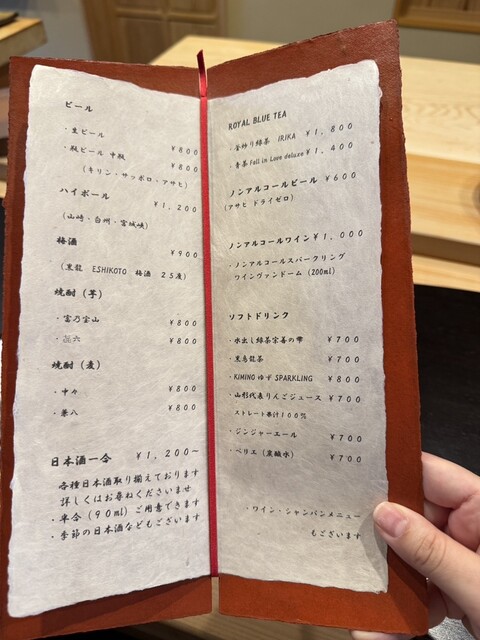 ビール
・生ビール ¥800
・瓶ビール 中瓶 ¥800
(キリン・サッポロ・アサヒ)
ハイボール ¥1,200
(山崎・白州・宮城峡)
梅酒 ¥900
(黒龍 ESHIKOTO 梅酒 25度)
焼酎(芋)
・富乃宝山 ¥800
・㐂六 ¥800
焼酎(麦)
・中々 ¥800
・兼八 ¥800
日本酒一合 ¥1,200~
各種日本酒取り揃えております
詳しくはお尋ねくださいませ
・半合(90ml)ご用意できます
・季節の日本酒などもございます
ROYAL BLUE TEA
・釜炒り緑茶 IRIKA ¥1,800
・青茶 Fall in Love deluxe ¥1,400
ノンアルコールビール ¥600
(アサヒ ドライゼロ)
ノンアルコールワイン ¥1,000
・ノンアルコールスパークリング
ワインヴァンドーム(200ml)
ソフトドリンク
・水出し緑茶宗善の雫 ¥700
・黒烏龍茶 ¥700
・KIMINO ゆず SPARKLING ¥800
・山形代表りんごジュース ¥700
ストレート果汁100%
・ジンジャーエール ¥700
・ペリエ(炭酸水) ¥700
・ワイン・シャンパンメニュー
もございます